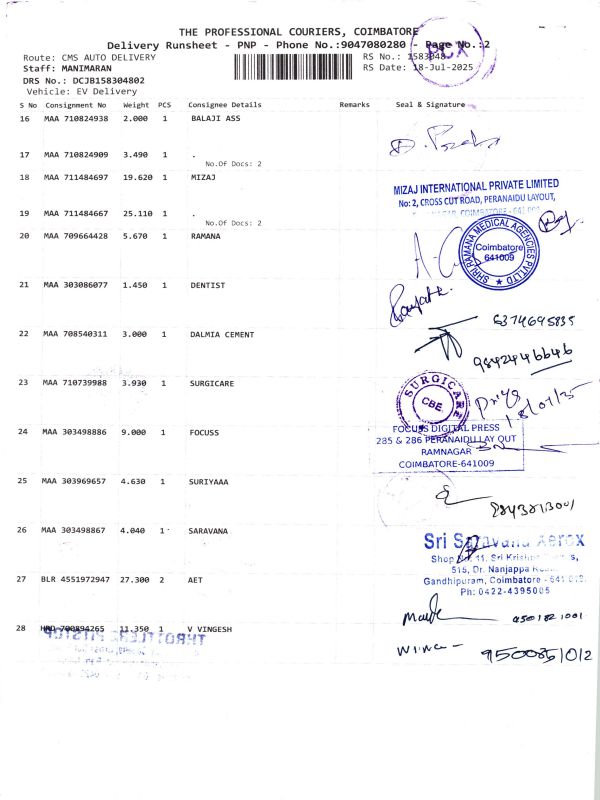 THE PROFESSIONAL COURIERS, COIMBATORE
Delivery Runsheet - PNP - Phone No.:9047080280 - Page No.:2
Route: CMS AUTO DELIVERY
RS No.: 1583048
Staff: MANIMARAN
RS Date: 18-Jul-2025
DRS No.: DCJB158304802
Vehicle: EV Delivery
PCX
S No Consignment No Weight PCS Consignee Details Remarks Seal & Signature
16 MAA 710824938 2.000 1 BALAJI ASS
17 MAA 710824909 3.490 1 .
No.Of Docs: 2
18 MAA 711484697 19.620 1 MIZAJ
MIZAJ INTERNATIONAL PRIVATE LIMITED
No: 2, CROSS CUT ROAD, PERANAIDU LAYOUT,
COIMBATORE - 641
19 MAA 711484667 25.110 1 .
No.Of Docs: 2
20 MAA 709664428 5.670 1 RAMANA
SHRI RAMANA MEDICAL AGENCIES PVT LTD
Coimbatore
641009
21 MAA 303086077 1.450 1 DENTIST
6374695835
22 MAA 708540311 3.000 1 DALMIA CEMENT
9842446646
23 MAA 710739988 3.930 1 SURGICARE
SURGICARE
CBE.
Priya
18/07/25
24 MAA 303498886 9.000 1 FOCUSS
FOCUSS DIGITAL PRESS
285 & 286 PERANAIDU LAY OUT
RAMNAGAR
COIMBATORE-641009
25 MAA 303969657 4.630 1 SURIYAAA
9843813001
26 MAA 303498867 4.040 1 SARAVANA
Sri Saravana Xerox
Shop No. 11, Sri Krishna
515, Dr. Nanjappa
Gandhipuram, Coimbatore - 641 018.
Ph: 0422-4395005
27 BLR 4551972947 27.300 2 AET
9501821001
28 HRD 700894265 11.350 1 V VINGESH
THROTTLERZ PITSTOP
9500851012